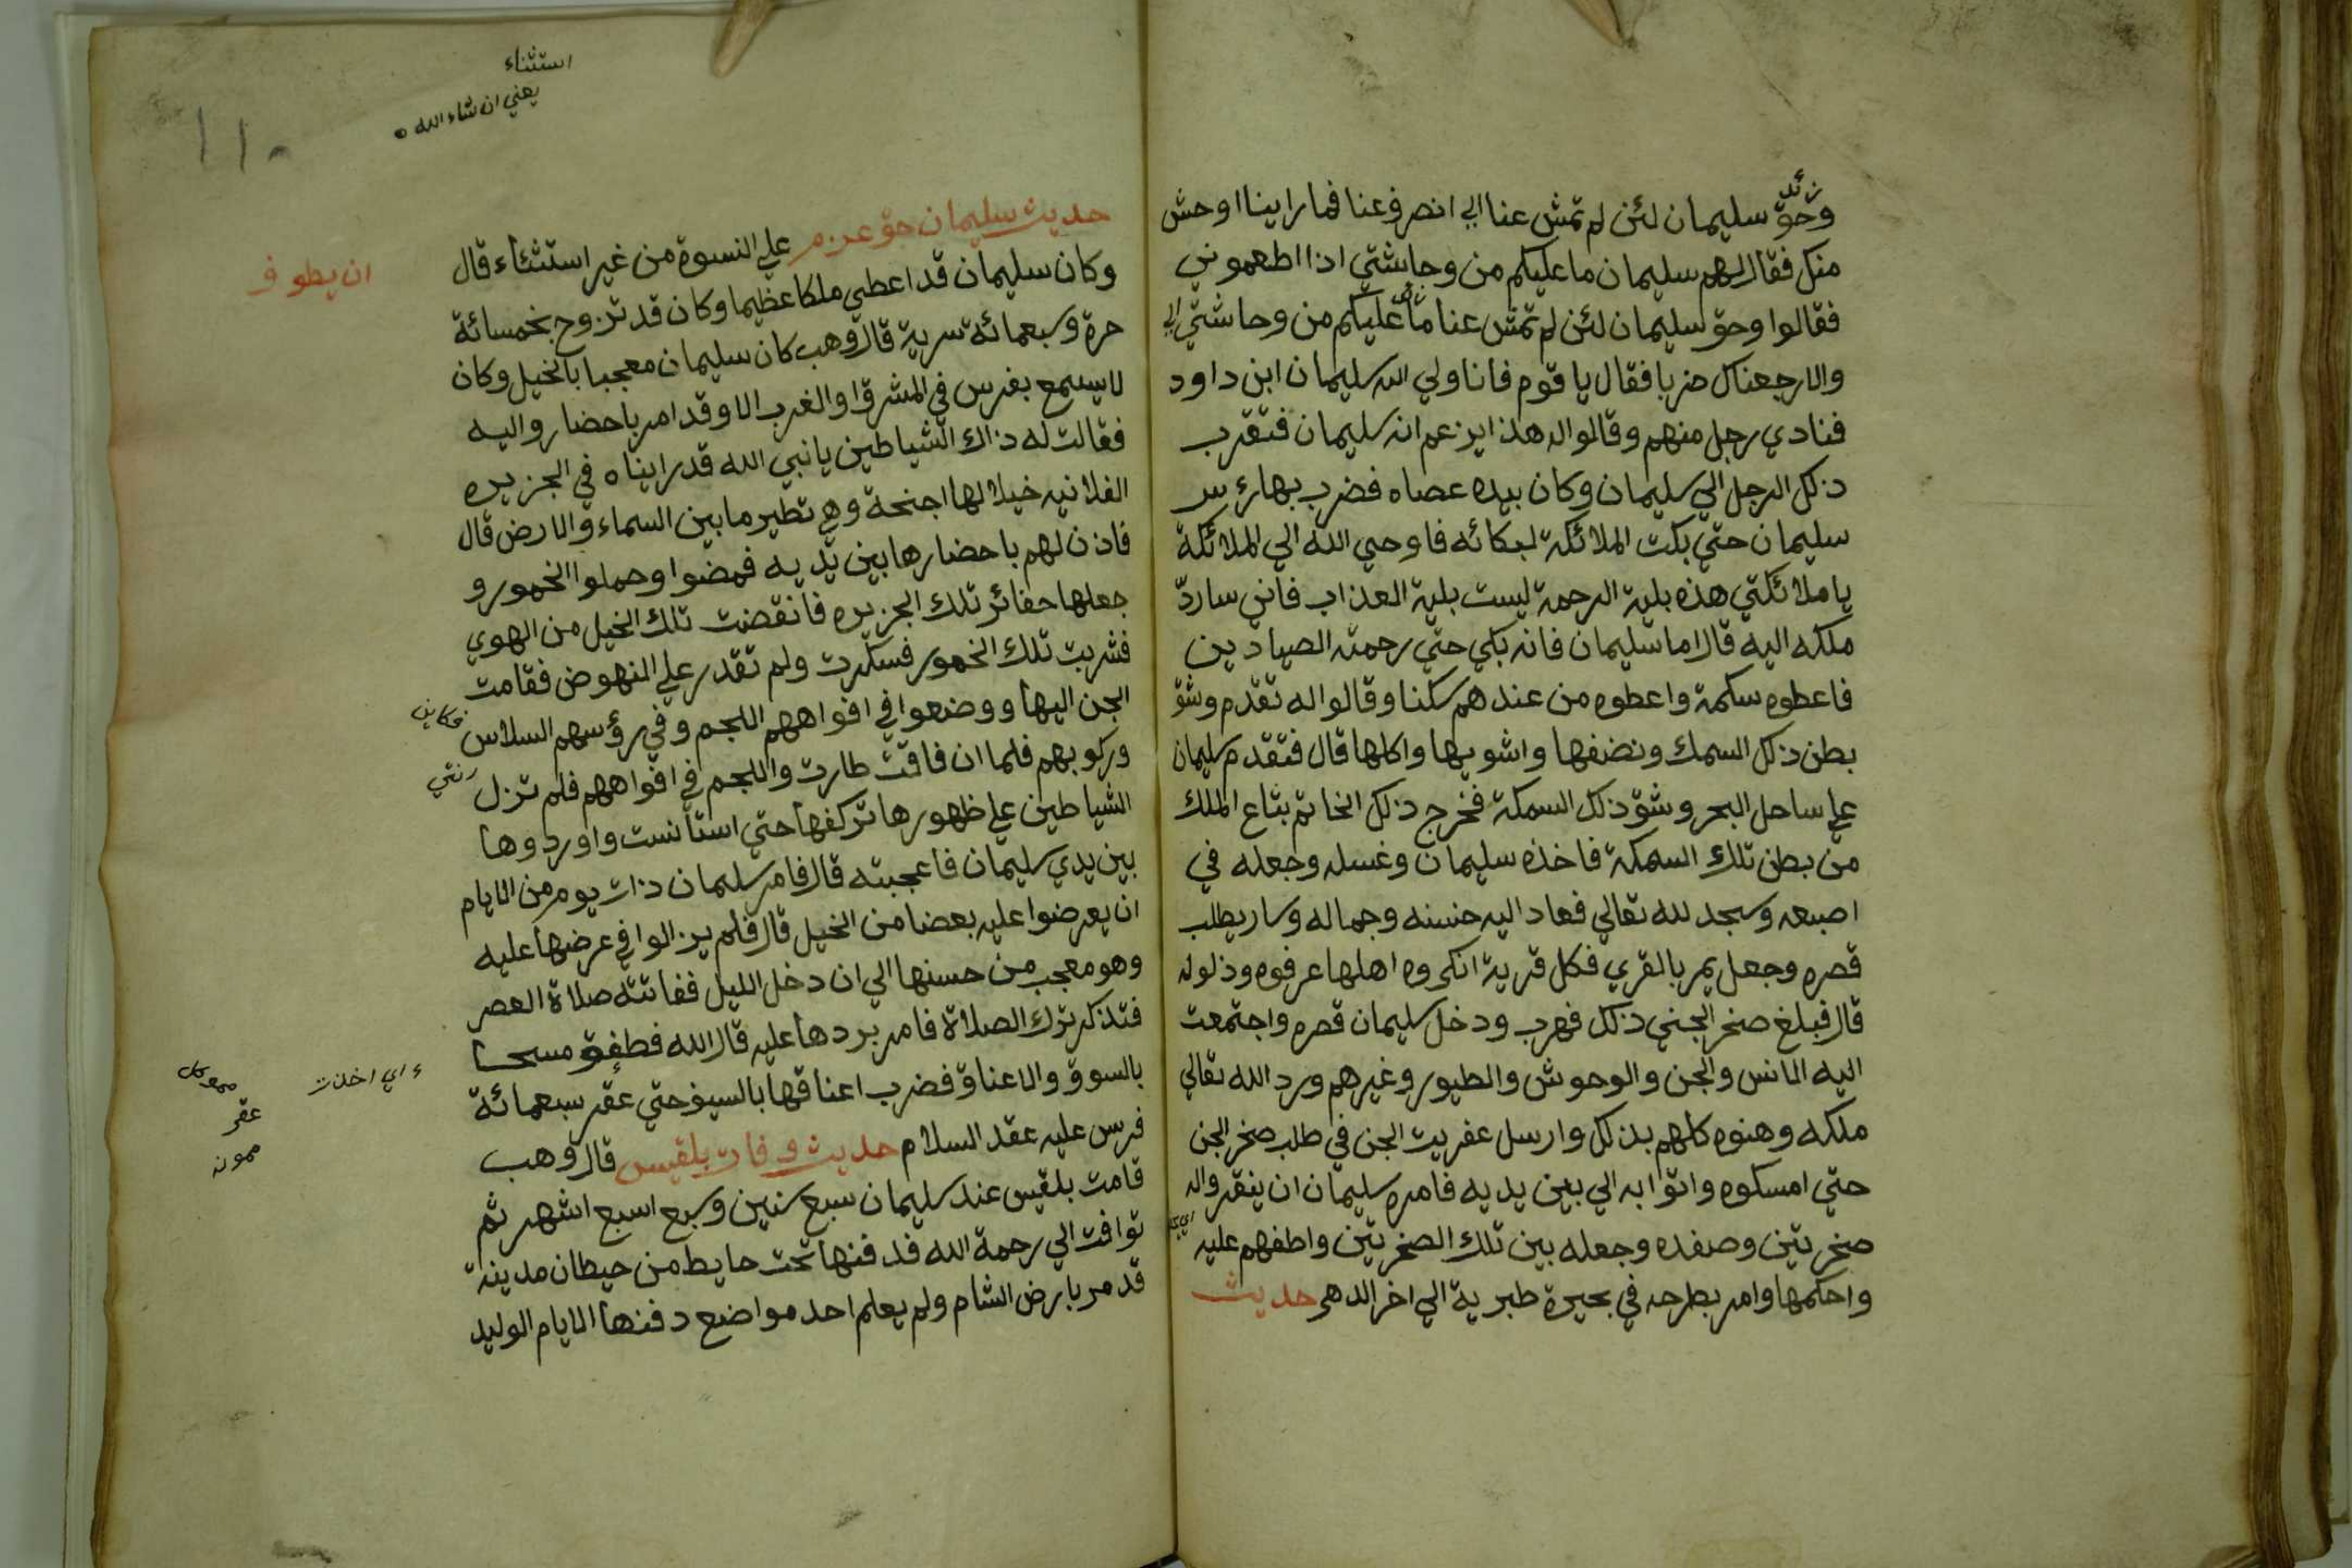 زئد
وحق سليمان لئن لم تمش عنا الي انصرف عنا فما راينا اوحش
منك فقال لهم سليمان ما عليكم من وحاشتي اذا اطعموني
فقالوا وحق سليمان لئن لم تمش عنا ما عليكم من وحاشتي الي
والا رجعناك ضربا فقال يا قوم فانا ولي الله سليمان ابن داود
فنادي رجل منهم وقالوا له هذا يزعم انه سليمان فتقرب
ذلك الرجل الي سليمان وكان بيده عصاه فضرب بها رئس
سليمان حتي بكت الملائكة لبكائه فاوحي الله الي الملائكة
يا ملائكتي هذه بلية الرحمة ليست بلية العذاب فاني ساردّ
ملكه اليه قال اما سليمان فانه بكي حتي رحمته الصيادين
فاعطوه سكمة واعطوه من عندهم سكنا وقالوا له تقدم وشق
بطن ذلك السمك ونضفها واشويها واكلها قال فتقدم سليمان
علي ساحل البحر وشق ذلك السمكة فخرج ذلك الخاتم بتاع الملك
من بطن تلك السمكة فاخذه سليمان وغسله وجعله في
اصبعه وسجد لله تعالي فعاد اليه حسنه وجماله وسار يطلب
قصره وجعل يمر بالقري فكل قرية انكروه اهلها عرفوه وذلوله
قال فبلغ صخر الجني ذلك فهرب ودخل سليمان قصره واجتمعت
اليه الانس والجن والوحوش والطيور وغيرهم ورد الله تعالي
ملكه وهنوه كلهم بذلك وارسل عفريت الجن في طلب صخر الجن
حتي امسكوه واتوا به الي بين يديه فامره سليمان ان ينقروا له
صخرتين وصفده وجعله بين تلك الصخرتين واطفهم عليه
واحكمها وامر بطرحه في بحيرة طبرية الي اخر الدهر حديث
استثناء
يعني ان شاء الله
١١٠
حديث سليمان حق عزم علي النسوة من غير استثناء قال
ان يطوف
وكان سليمان قد اعطي ملكا عظيما وكان قد تزوج بخمسائة
حرة وسبعمائة سرية قال وهب كان سليمان معجبا بالخيل وكان
لا يسمع بفرس في المشرق او الغرب الا وقد امر باحضاروا اليه
فقالت له ذاك الشياطين يا نبي الله قد رايناه في الجزيره
الفلانيه خيلا لها اجنحة وهي تطير ما بين السماء والارض قال
فاذن لهم باحضارها بين يديه فمضوا وحملوا الخمور و
جعلها حفائر تلك الجزيره فانقضت تلك الخيل من الهوي
فشربت تلك الخمور فسكرت ولم تقدر علي النهوض فقامت
الجن اليها ووضعوا في افواههم اللجم وفي رؤسهم السلاس
وركوبهم فلما ان فاقت طارت واللجم في افواههم فلم تزل
الشياطين علي ظهورها تركفها حتي استأنست واوردوها
بين يدي سليمان فاعجبته قال فامر سليمان ذات يوم من الايام
ان يعرضوا عليه بعضا من الخيل قال فلم يزالوا في عرضها عليه
وهو معجب من حسنها الي ان دخل الليل ففاتته صلاة العصر
فتذكر ترك الصلاة فامر بردها عليه قال الله فطفق مسحا
ء اي اخذت
بالسوق والاعناق فضرب اعناقها بالسيف حتي عقر سبعمائة
عقر
فرس عليه عقد السلام حديث وفات بلقيس قال وهب
قامت بلقيس عند سليمان سبع سنين وسبع اسبع اشهر ثم
توافت الي رحمة الله فدفنها تحت حايط من حيطان مدينة
قدمر بارض الشام ولم يعلم احد مواضع دفنها الايام الوليد